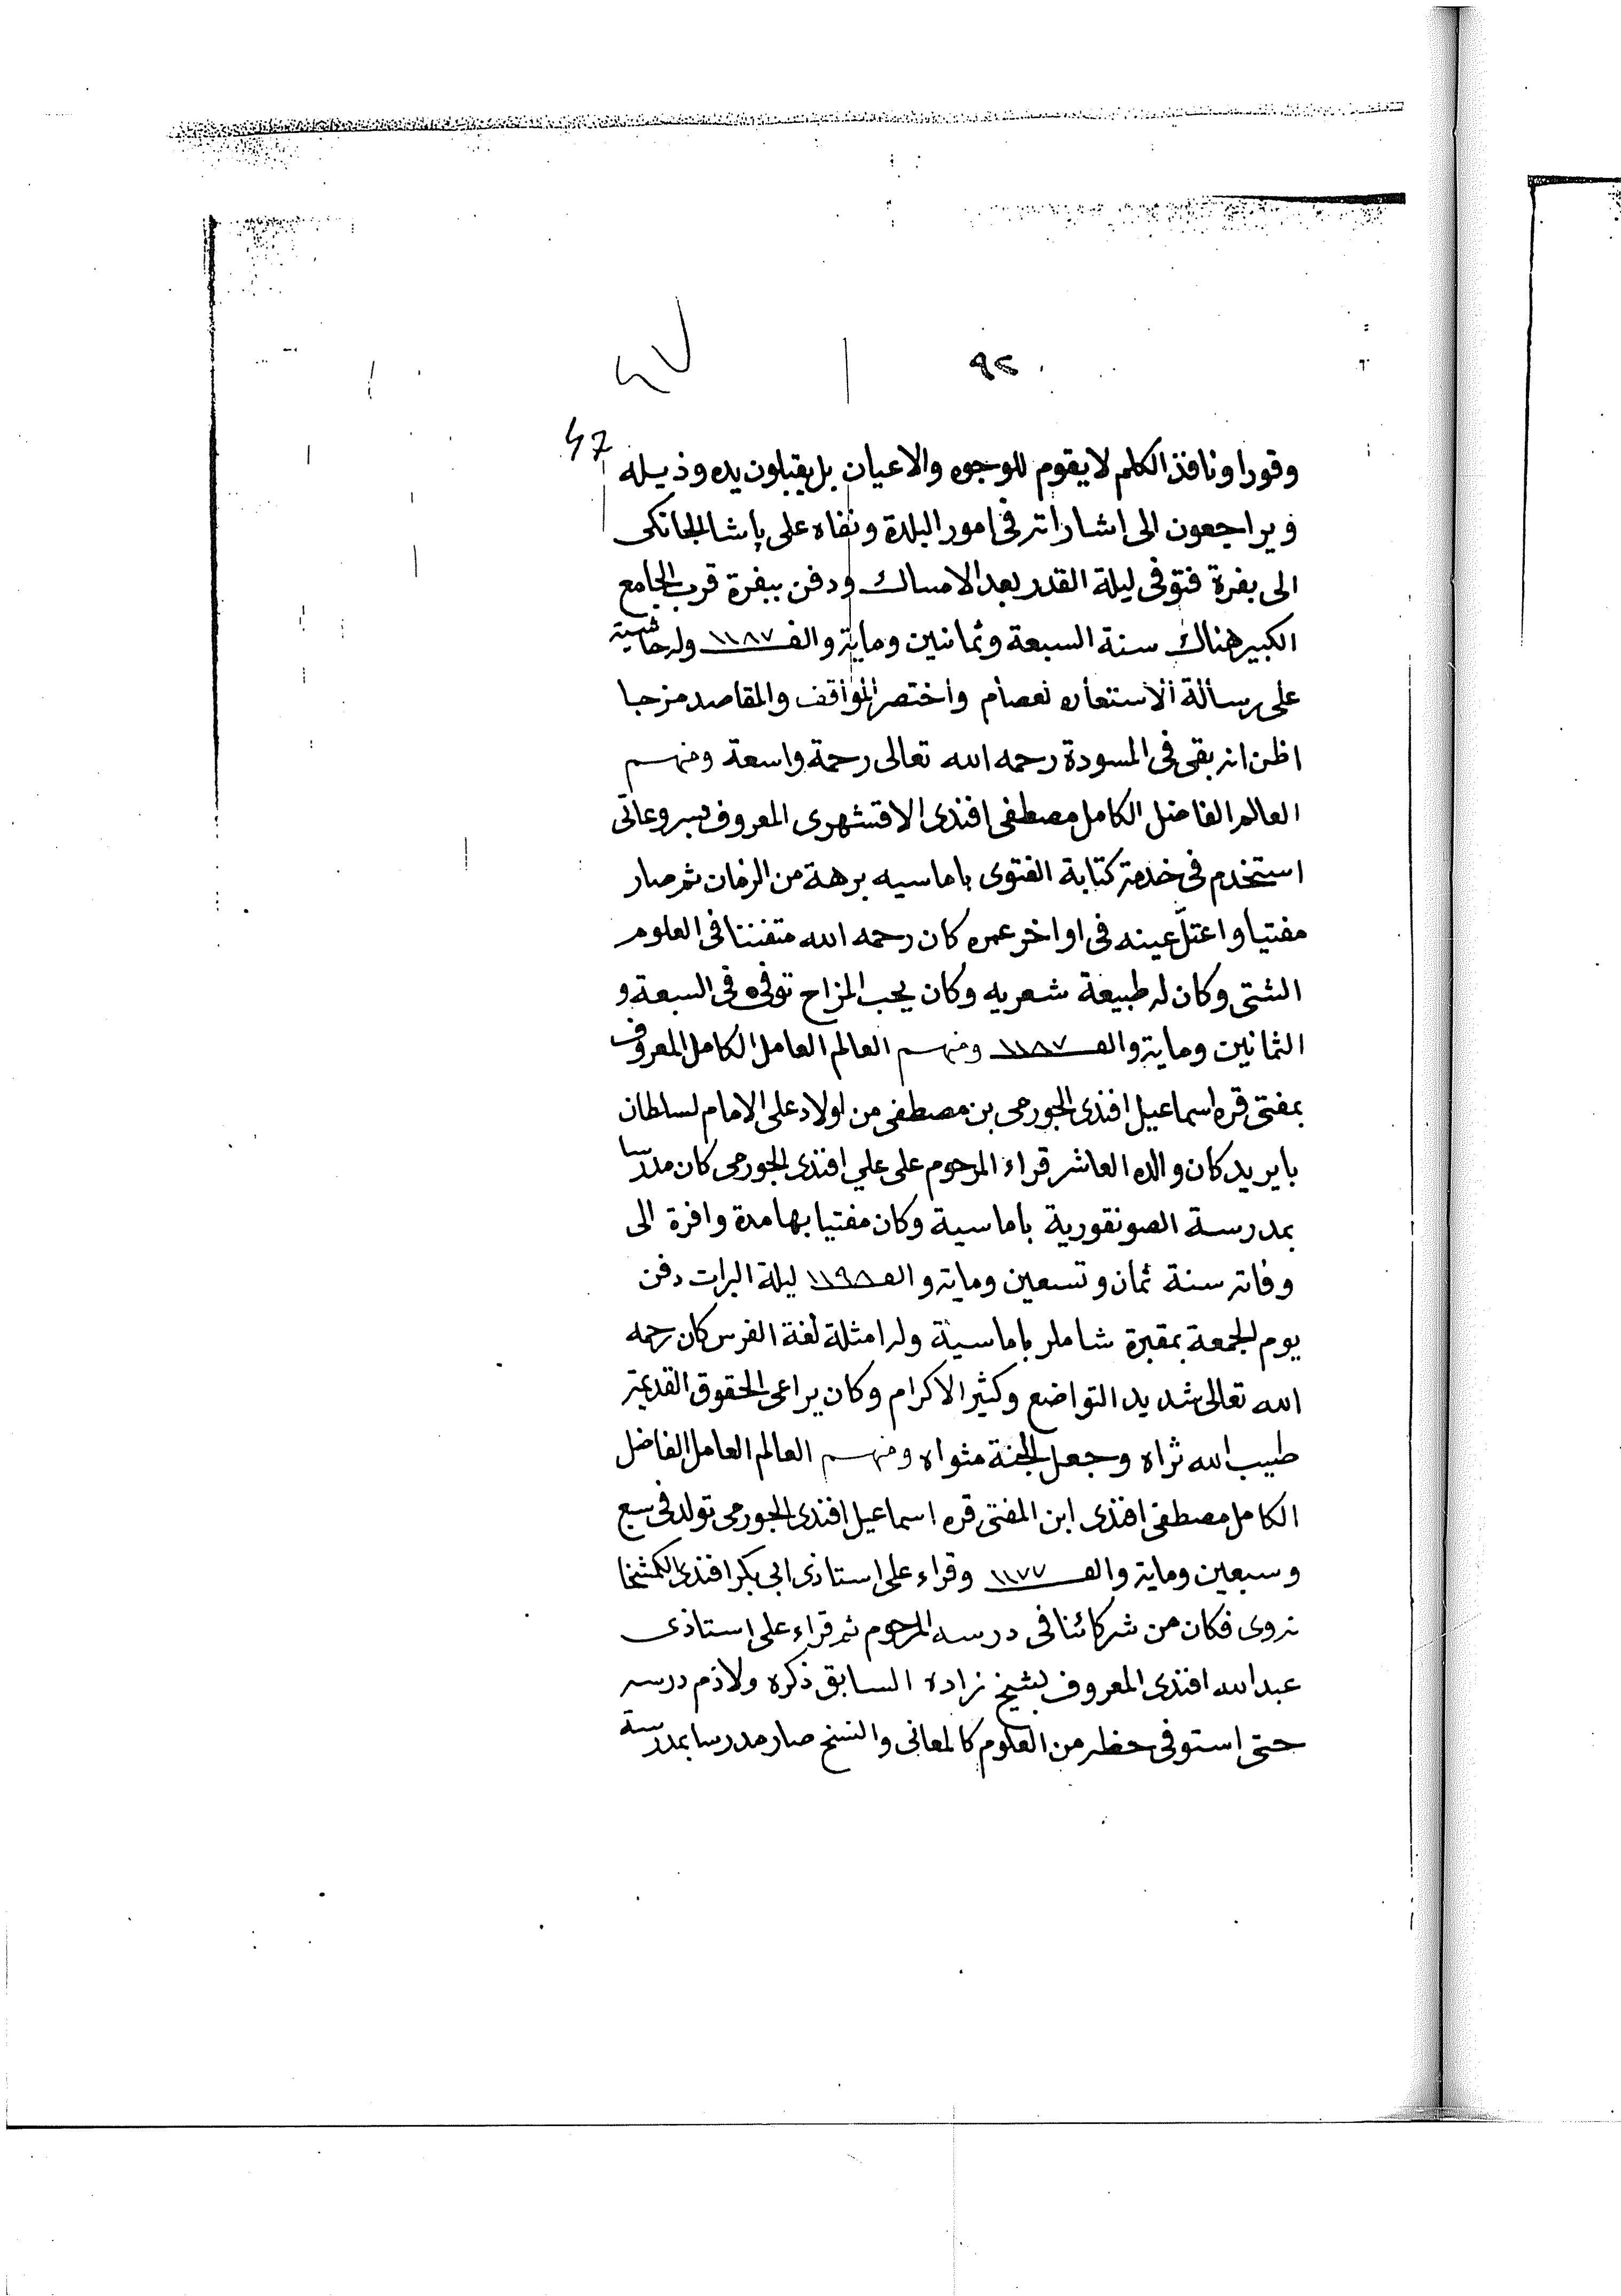 ٩٢
٤٧
47
وقورا ونافذ الكلم لا يقوم للوجوه والاعيان بل يقبلون يده وذيله
ويراجعون الى اشاراته فى امور البلدة ونفاه على پاشا الجانكى
الى بفرة فتوفى ليلة القدر بعد الامساك ودفن ببفرة قرب الجامع
الكبير هناك سنة السبعة وثمانين وماية والف ١١٨٧ وله حاشية
على رسالة الاستعاره لعصام واختصر المواقف والمقاصد مزجا
اظن انه بقى فى المسودة رحمه الله تعالى رحمة واسعة ومنهم
العالم الفاضل الكامل مصطفى افندى الاقتشهرى المعروف
استخدم فى خدمة كتابة الفتوى باماسيه برهة من الزمان ثم صار
مفتيا واعتلّ عينه فى اواخر عمره كان رحمه الله متفننا فى العلوم
الشتى وكان له طبيعة شعريه وكان يحب المزاح توفى فى السبعة و
الثمانين وماية والف ١١٨٧ ومنهم العالم العامل الكامل المعروف
بمفتى قره اسماعيل افندى الجورمى بن مصطفى من اولاد على الامام لسلطان
بايزيد كان والده العاشر قراء المرحوم على علي افندى الجورمى كان مدرسا
بمدرسة الصونقورية باماسية وكان مفتيا بها مدة وافرة الى
وفاته سنة ثمان وتسعين وماية والف ١١٩٨ ليلة البرات دفن
يوم الجمعة بمقبرة شاملر باماسية وله امثلة لغة الفرس كان رحمه
الله تعالى شديد التواضع وكثير الاكرام وكان يراعى الحقوق القديمة
طيب الله ثراه وجعل الجنة مثواه ومنهم العالم العامل الفاضل
الكامل مصطفى افندى ابن المفتى قره اسماعيل افندى الجورمى تولد فى سبع
وسبعين وماية والف ١١٧٧ وقراء على استاذى ابى بكر افندى الكمشخا
نروى فكان من شركائنا فى درسه المرحوم ثم قراء على استاذى
عبد الله افندى المعروف بشيخ زاده السابق ذكره ولازم درسه
حتى استوفى حظه من العلوم كالمعانى والنسخ صار مدرسا بمدرسة